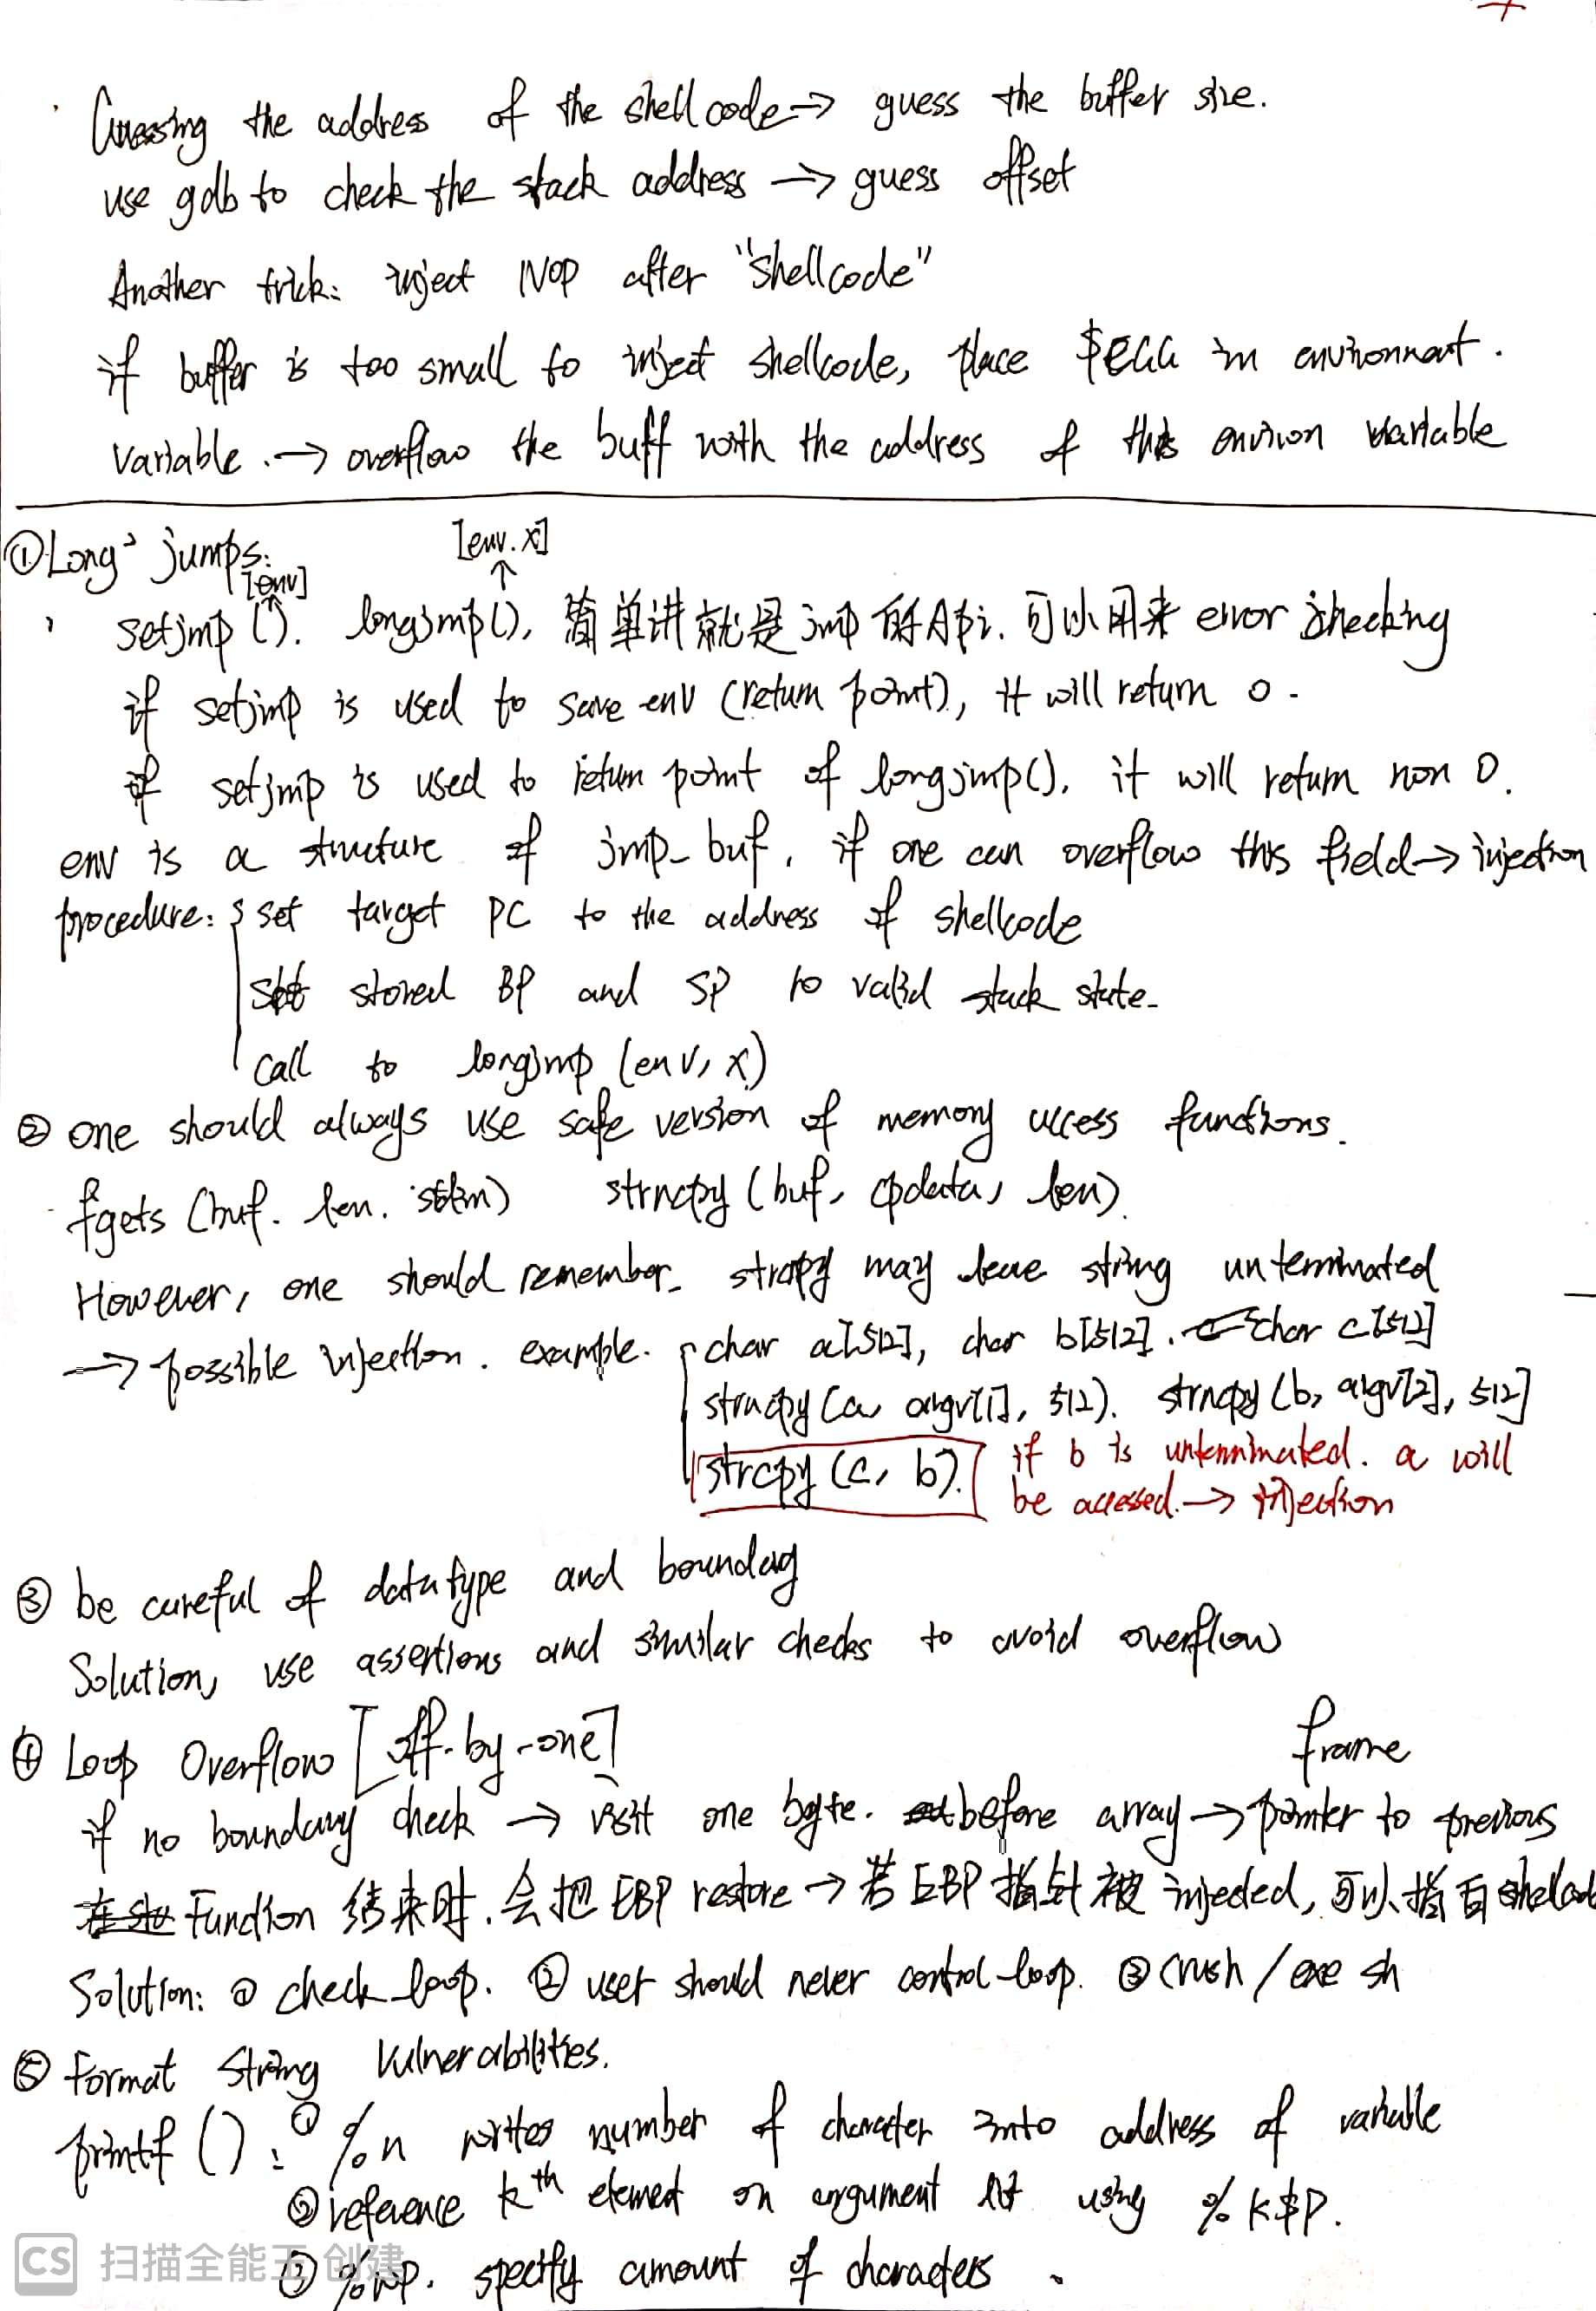 Guessing the address of the shellcode → guess the buffer size.
use gdb to check the stack address → guess offset
Another trick: inject NOP after "shellcode"
if buffer is too small to inject shellcode, place $EGG in environment.
variable. → overflow the buff with the address of this environ variable
① Long jumps:
[env] [env. x]
setjmp (). longjmp(), 简单讲就是 jmp 的 Api. 可以用来 error checking
if setjmp is used to save env (return point), it will return 0.
if setjmp is used to return point of longjmp(), it will return non 0.
env is a structure of jmp_buf, if one can overflow this field → injection
procedure: { set target PC to the address of shellcode
set stored BP and SP to valid stack state.
call to longjmp (env, x)
② one should always use safe version of memory access functions.
fgets (buf. len. stdin) strncpy (buf, cpdata, len).
However, one should remember strncpy may leave string unterminated
→ possible injection. example. char a[512], char b[512]. char c[512]
strncpy (a, argv[1], 512). strncpy (b, argv[2], 512]
strcpy (c, b). if b is unterminated. a will
be accessed. → injection
③ be careful of data type and boundary
Solution, use assertions and similar checks to avoid overflow
④ Loop Overflow [off-by-one]
frame
if no boundary check → visit one byte. before array → pointer to previous
Function 结束时. 会把 EBP restore → 若 EBP 指针被 injected, 可以指向 shellcode
Solution: ① check loop. ② user should never control loop. ③ crush / exe sh
⑤ Format String Vulnerabilities.
printf () : ① %n writes number of character into address of variable
② reference kth element on argument list using %k$p.
③ %np. specify amount of characters.
CS 扫描全能王 创建